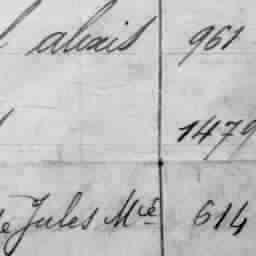 alexis 961
1479
Jules Mcé 614